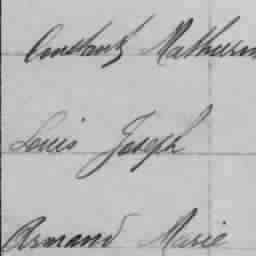 Constant Mathurin
Louis Joseph
Armand Marie